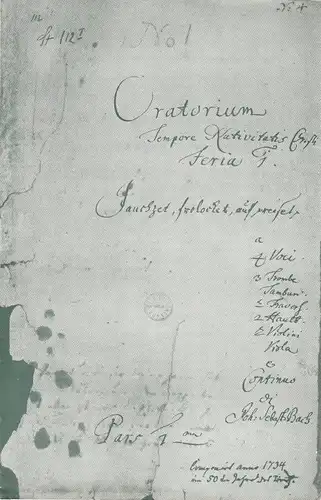 No 4
112 I
No 1
Oratorium
Tempore Nativitatis Christi
Feria 1.
Jauchzet, frolocket, auf preiset,
a
4 Voci.
3 Trombe
Tamburi
2 Travers.
2 Hautb.
2 Violini
Viola
e
Continuo
di
Joh. Sebast. Bach
Pars 1 ma
anno 1734
im 50 Jahre des